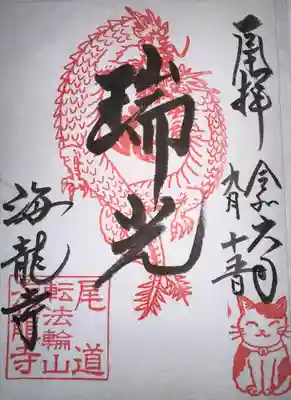 奉拝
令和六年
瑞光
海龍寺
尾道
転法輪山
海龍寺